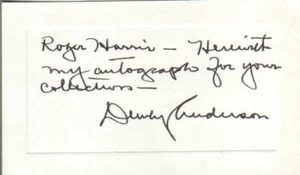 Roger Harris — Herewith
my autograph for your
collections —
Dewey Anderson